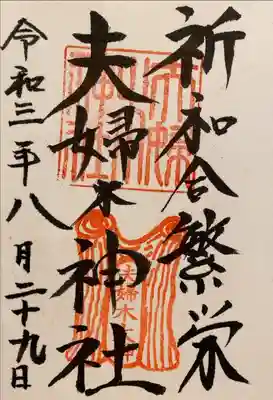 祈和合繁栄
夫婦木神社
令和三年八月二十九日
夫婦木大神